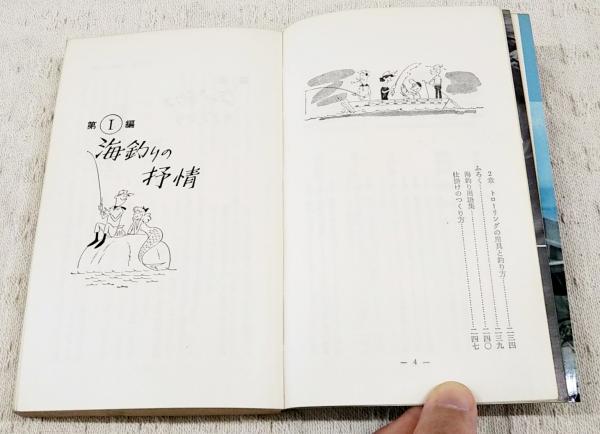 2章 トローリングの用具と釣り方……………二三四
ふろく……………二三九
海釣り用語集……………二四〇
仕掛けのつくり方……………二四七
— 4 —
第Ⅰ編
海釣りの
抒情